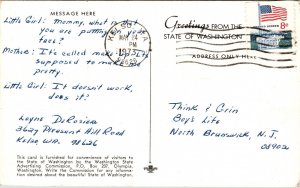 MESSAGE HERE
Little Girl: Mommy, what is
you are putting
face?
Mother: It's called make
supposed to make me
pretty.
Little Girl: It doesn't work,
does it?
Layne DeRosier
3627 Pleasant Hill Road
Kelso, WA. 98626
This card is furnished for convenience of visitors to
the State of Washington by the Washington State
Advertising Commission, P.O. Box 207, Olympia,
Washington. Write the Commission for any information
you may desire about the State of Washington.
Greetings FROM THE
STATE OF WASHINGTON
ADDRESS ONLY HERE
MAY 24
PM
1973
8c
Think & Grin
Boy's Life
North Brunswick, N. J.
08902